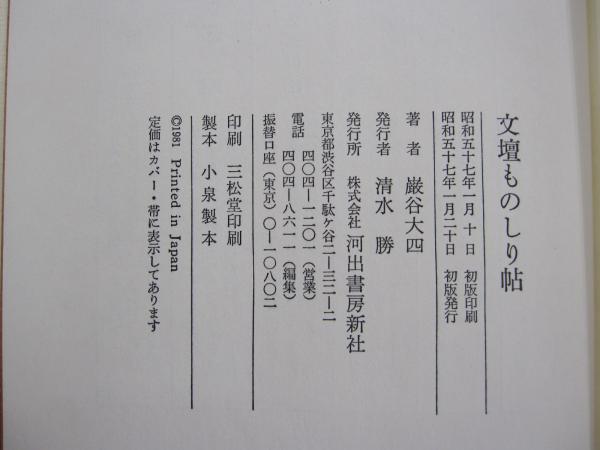 文壇ものしり帖
昭和五十七年一月 十 日 初版印刷
昭和五十七年一月二十日 初版発行
著 者 巌谷大四
発行者 清水 勝
発行所 株式会社 河出書房新社
東京都渋谷区千駄ケ谷二―三二―二
電話 四〇四―一二〇一（営業）
四〇四―八六一一（編集）
振替口座（東京）〇―一〇八〇二
印刷 三松堂印刷
製本 小泉製本
©1981 Printed in Japan
定価はカバー・帯に表示してあります